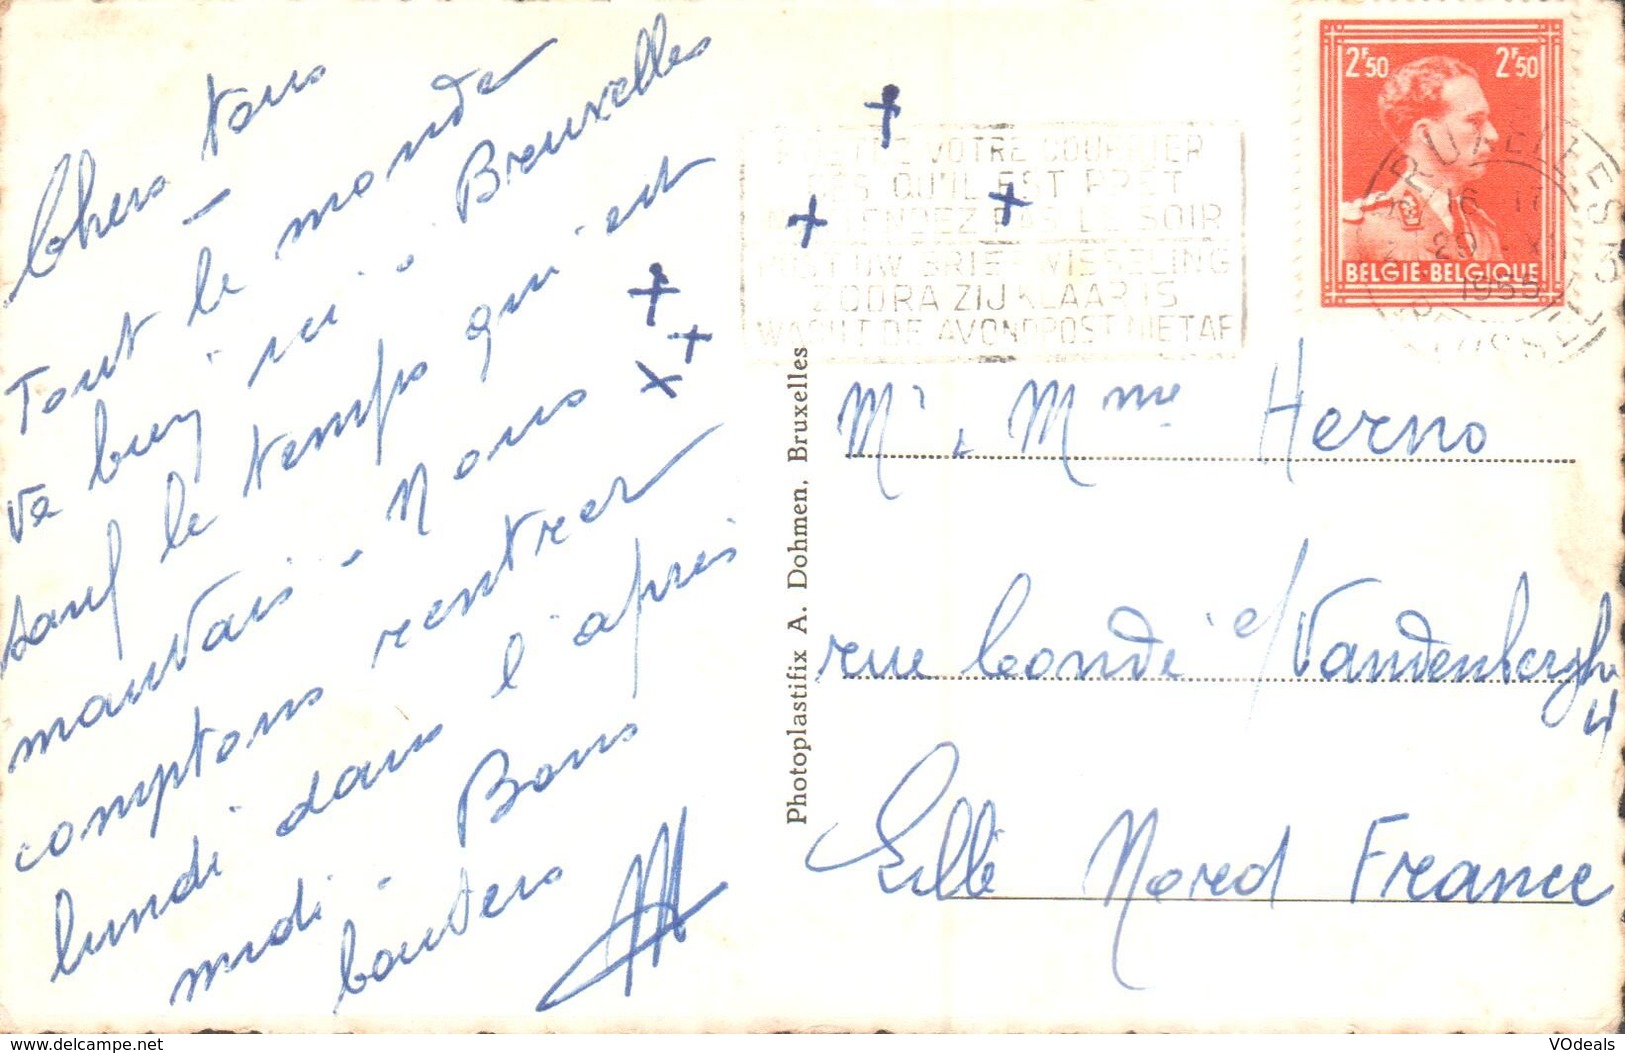 Chers tous
Tout le monde
va bien ici à Bruxelles
sauf le temps qui est
mauvais - Nous
comptons rentrer
lundi dans l'après
midi - Bons
baisers
POSTEZ VOTRE COURRIER
DES QU'IL EST PRET
N'ATTENDEZ PAS LE SOIR
POST UW BRIEFWISSELING
ZODRA ZIJ KLAAR IS
WACHT DE AVONDPOST NIET AF
2F50 2F50
BELGIE·BELGIQUE
BRUXELLES
1955
Photoplastifix A. Dohmen, Bruxelles
Mr & Mme Herno
rue Condé c/Vandenberghe
4
Lille Nord France
www.delcampe.net
VOdeals